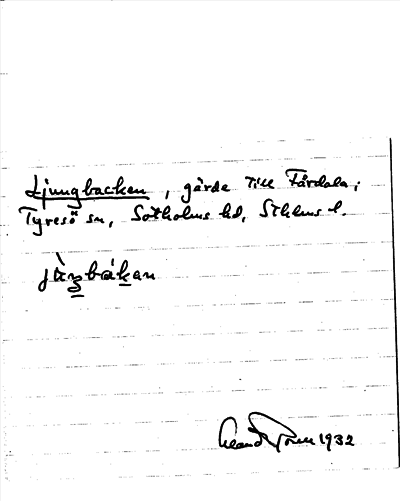 Ljungbacken, gärde till Fårdala,
Tyresö sn, Sotholms hd, Sthlms l.
jùŋbákan
1932